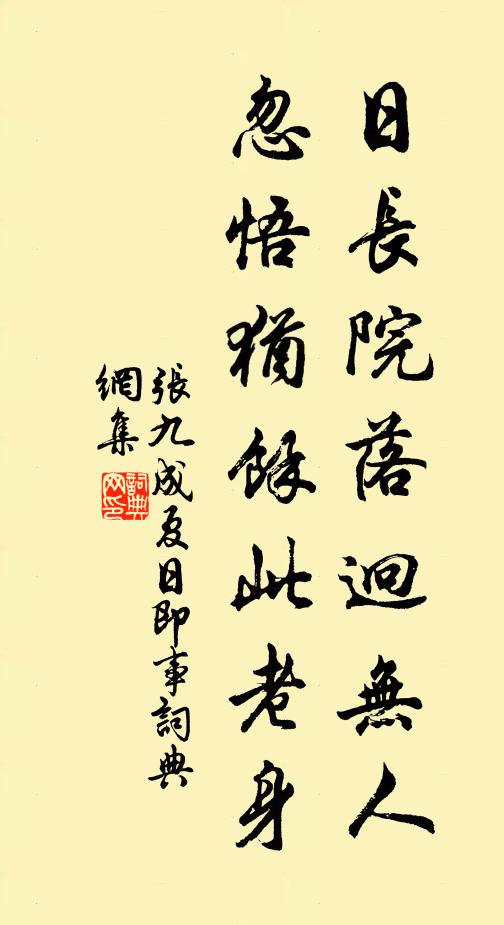 日長院落迴無人
忽悟猶餘此老身
張九成夏日即事詞典
網集
詞典
网印